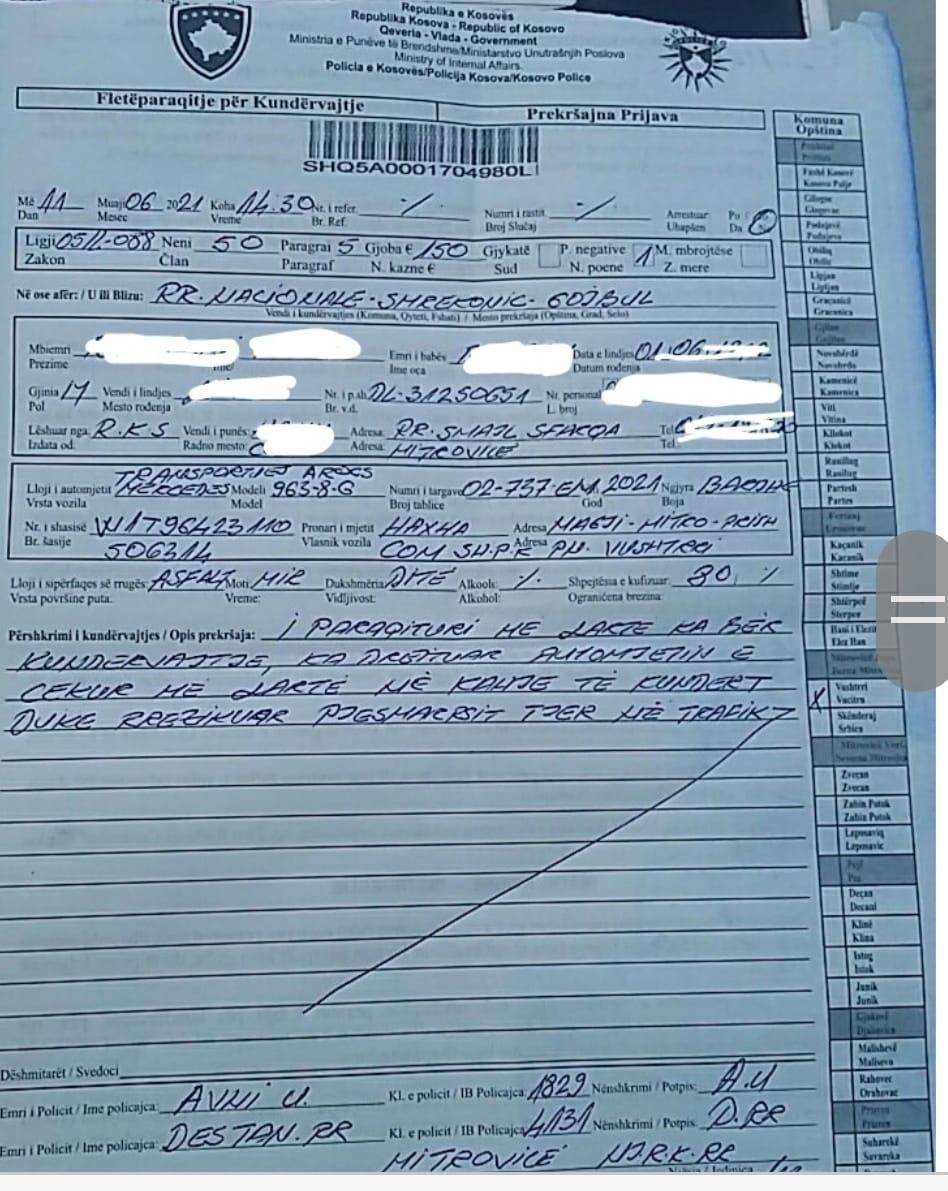 Republika e Kosovës
Republika Kosova - Republic of Kosovo
Qeveria - Vlada - Government
Ministria e Punëve të Brendshme/Ministarstvo Unutrašnjih Poslova
Ministry of Internal Affairs.
Policia e Kosovës/Policija Kosova/Kosovo Police
Fletëparaqitje për Kundërvajtje Prekršajna Prijava
SHQ5A0001704980L
Më 11 Muaji 06 2021 Koha 14.30 Nr. i refer. ·/. Numri i rastit ·/. Arrestuar Po
Dan Mesec Vreme Br. Ref. Broj Slučaj Uhapšen Da
Ligji 05/L-088 Neni 50 Paragrafi 5 Gjoba € 150 Gjykatë P. negative 1 M. mbrojtëse
Zakon Član Paragraf N. kazne € Sud N. poene Z. mere
Në ose afër: / U ili Blizu: RR. NACIONALE-SMREKONIC-GOJBUL
Vendi i kundërvajtjes (Komuna, Qyteti, Fshati) / Mesto prekršaja (Opština, Grad, Selo)
Mbiemri Emri i babës Data e lindjes 01.06.
Prezime Ime oca Datum rođenja
Gjinia M Vendi i lindjes Nr. i p.sh. DL-31250651 Nr. personal
Pol Mesto rođenja Br. v.d. L. broj
Lëshuar nga: R.K.S Vendi i punës: Adresa: RR. SMAJL Tel.
Izdata od: Radno mesto: Adresa: MITROVICË Tel.
TRANSPORTUES
Lloji i automjetit MERCEDES Modeli 963-8-G Numri i targave 02-737-EM 2021 Ngjyra BARDHE
Vrsta vozila Model Broj tablice God Boja
Nr. i shasisë W1T96423110 Pronari i mjetit HAXHA Adresa MAGJI-MITRO-PRISH
Br. šasije 506314 Vlasnik vozila COM SH.P.K Adresa VUSHTRRI
Lloji i sipërfaqes së rrugës: ASFALT Moti: MIR Dukshmëria DITË Alkooli: ·/. Shpejtësia e kufizuar: 80 ·/.
Vrsta površine puta: Vreme: Vidljivost: Alkohol: Ograničena brezina:
Përshkrimi i kundërvajtjes / Opis prekršaja: I PARAQITURI ME LARTE KA BËR
KUNDERVAJTJE, KA DREJTUAR AUTOMJETIN E
CEKUR MË LARTË NË KAHJE TË KUNDERT
DUKE RREZIKUAR PJESMARRSIT TJER NË TRAFIK
Dëshmitarët / Svedoci
Emri i Policit / Ime policajca: AVNI U. Kl. e policit / IB Policajca 1829 Nënshkrimi / Potpis: A.U
Emri i Policit / Ime policajca: DESTAN. RR Kl. e policit / IB Policajca 4131 Nënshkrimi / Potpis: D.RR
MITROVICË NJ.R.K.RR
Komuna
Opština
Fushë Kosovë
Kosova Polje
Gllogoc
Glogovac
Podujevë
Podujevo
Obiliq
Obilić
Lipjan
Lipljan
Graçanicë
Gračanica
Novobërdë
Novobrdo
Kamenicë
Kamenica
Viti
Vitina
Kllokot
Klokot
Ranillug
Ranilug
Partesh
Parteš
Kaçanik
Kačanik
Shtime
Štimlje
Shtërpcë
Štrpce
Hani i Elezit
Elez Han
X Vushtrri
Vučitrn
Skënderaj
Srbica
Zveçan
Zvečan
Zubin Potok
Zubin Potok
Leposaviq
Leposavić
Pejë
Peć
Deçan
Dečani
Klinë
Klina
Istog
Istok
Junik
Junik
Gjakovë
Djakovica
Malishevë
Mališevo
Rahovec
Orahovac
Prizren
Prizren
Suharekë
Suvareka